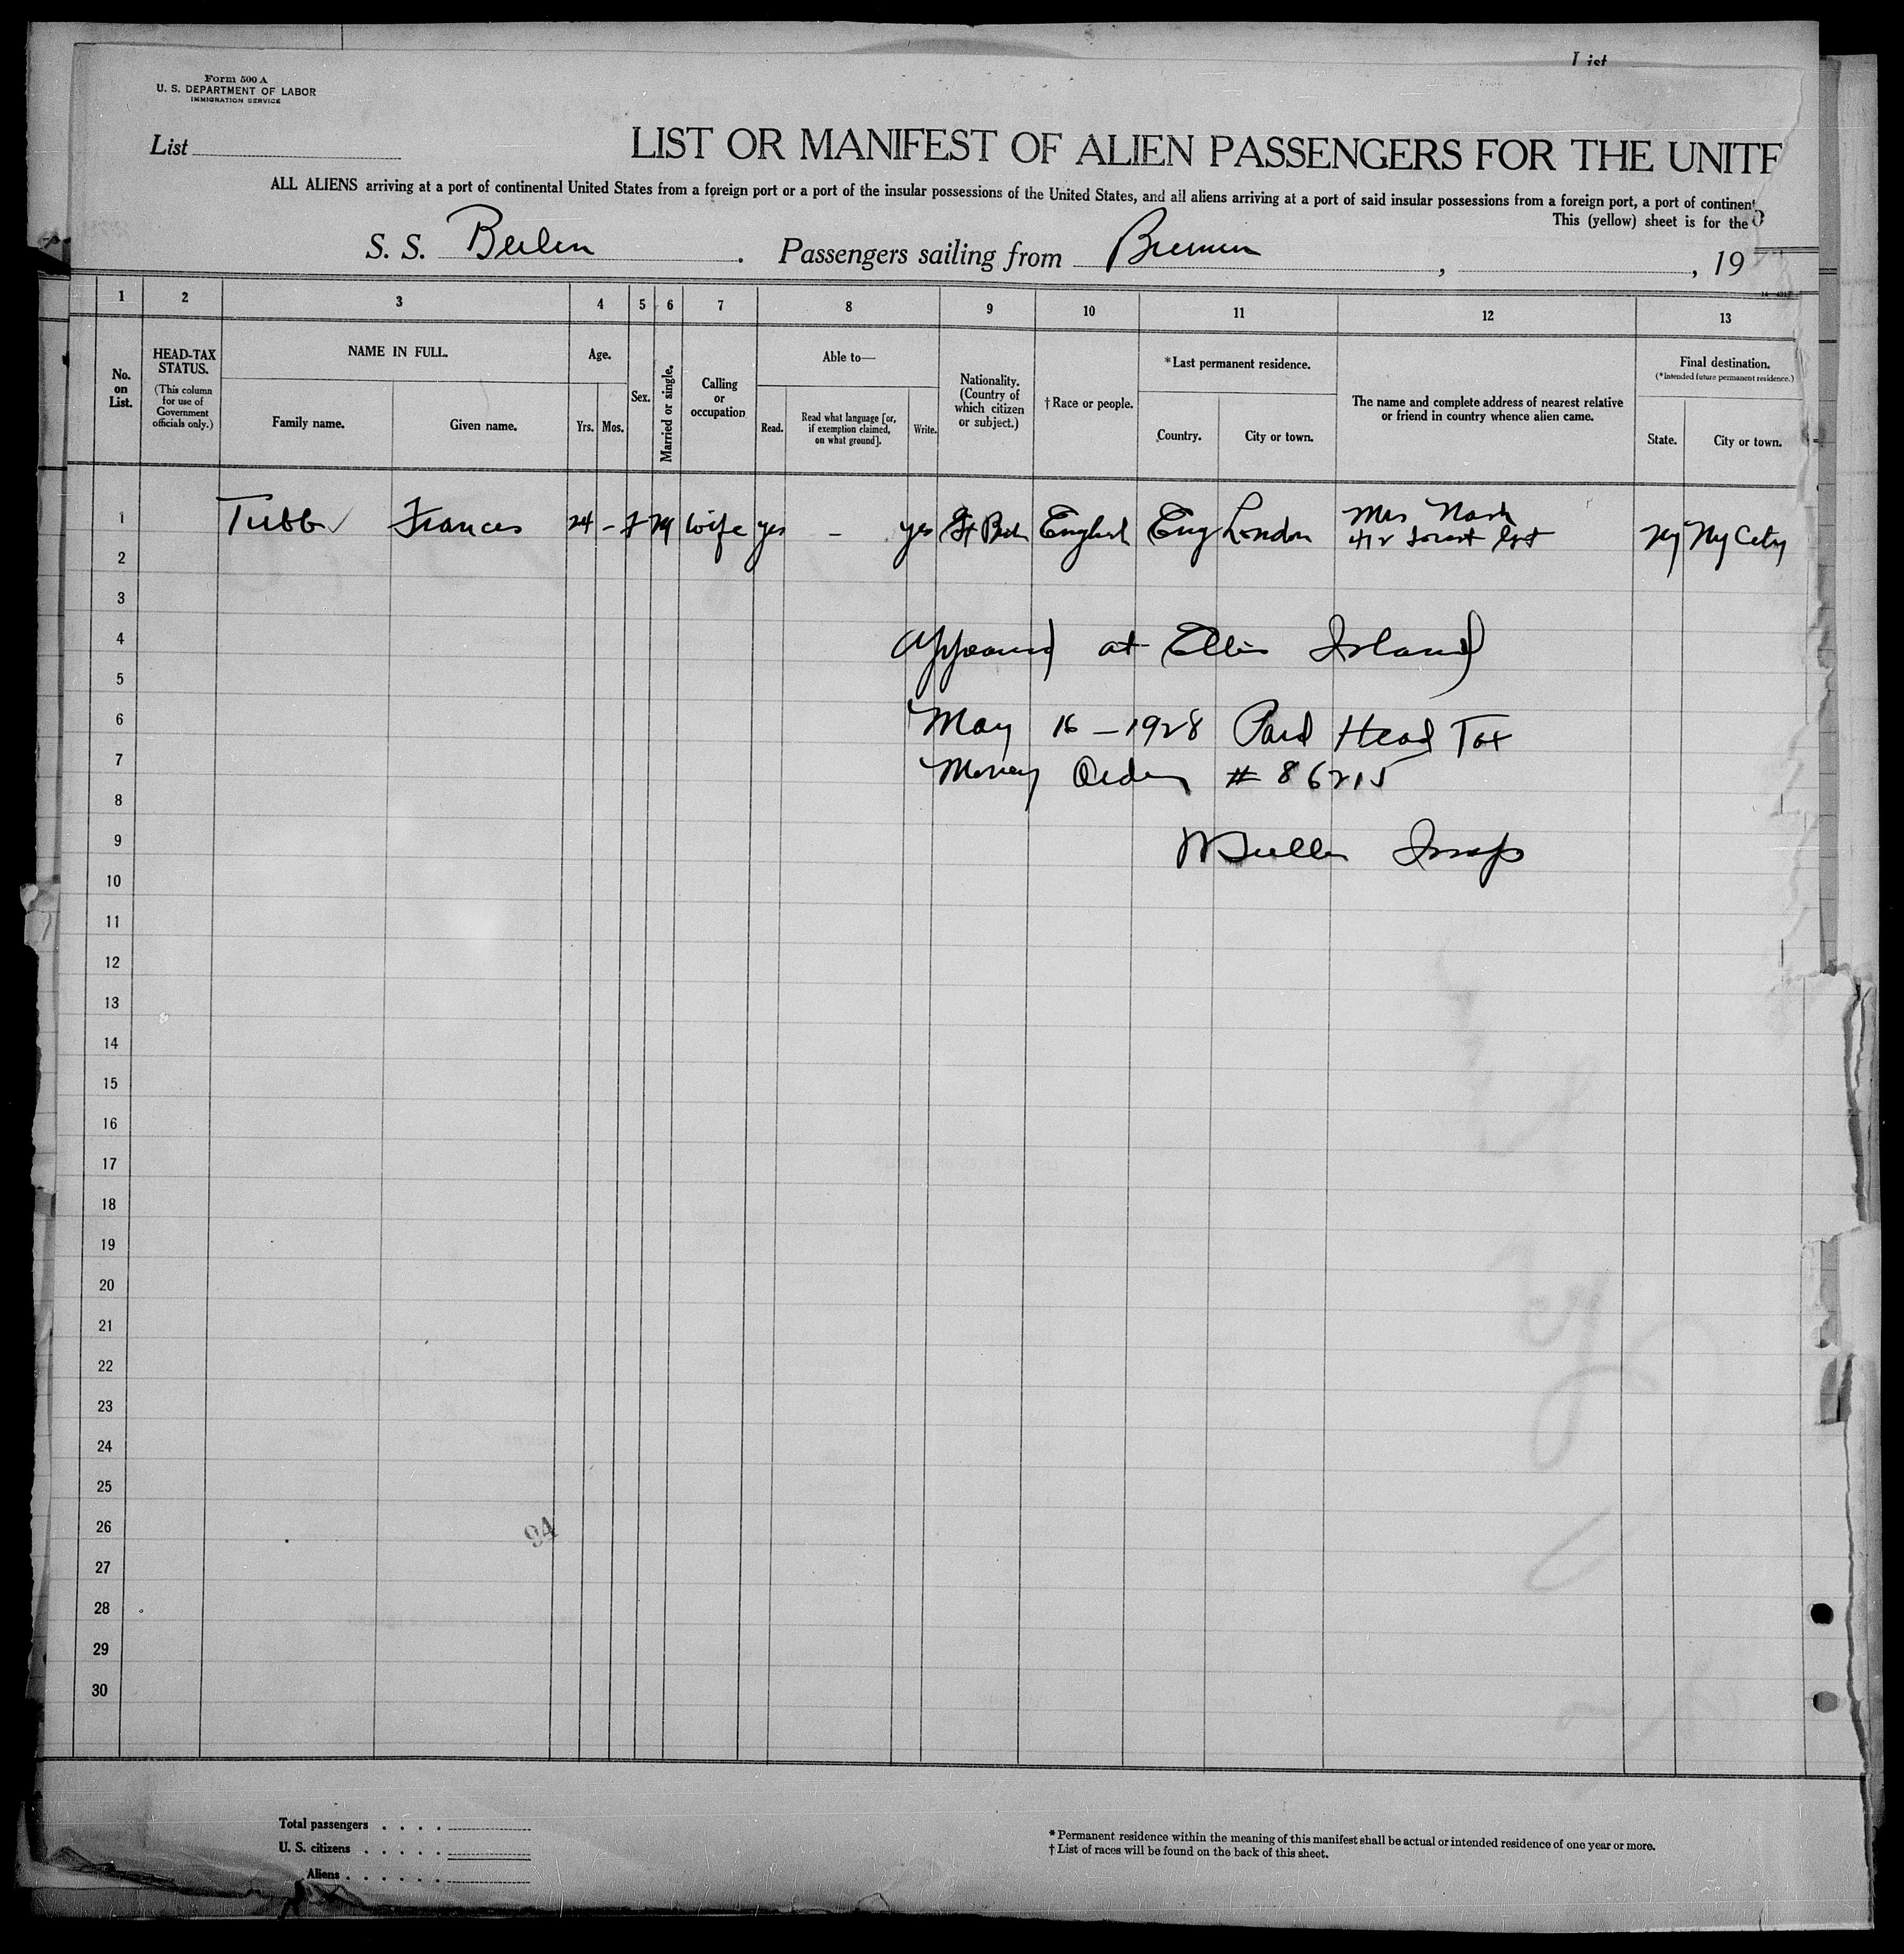 List
Form 500 A
U. S. DEPARTMENT OF LABOR
IMMIGRATION SERVICE
List
LIST OR MANIFEST OF ALIEN PASSENGERS FOR THE UNITE
ALL ALIENS arriving at a port of continental United States from a foreign port or a port of the insular possessions of the United States, and all aliens arriving at a port of said insular possessions from a foreign port, a port of continent
This (yellow) sheet is for the
S. S. Berlin. Passengers sailing from Bremen, , 19
1 2 3 4 5 6 7 8 9 10 11 12 13
No. on List.
HEAD-TAX STATUS.
(This column for use of Government officials only.)
NAME IN FULL.
Family name. Given name.
Age.
Yrs. Mos.
Sex.
Married or single.
Calling or occupation
Able to—
Read. Read what language [or, if exemption claimed, on what ground]. Write.
Nationality. (Country of which citizen or subject.)
† Race or people.
*Last permanent residence.
Country. City or town.
The name and complete address of nearest relative or friend in country whence alien came.
Final destination.
(*Intended future permanent residence.)
State. City or town.
1 Tubb ✓ Frances 24 – F M wife yes – yes Gt Brit English Eng London Mrs Nash
412 NY NY City
2
3
4 Appeared at Ellis Island
5
6 May 16 – 1928 Paid Head Tax
7 Money Order # 86215
8
9 Insp
10
11
12
13
14
15
16
17
18
19
20
21
22
23
24
25
26
94
27
28
29
30
Total passengers . . . .
U. S. citizens . . . . .
Aliens . . . . . .
* Permanent residence within the meaning of this manifest shall be actual or intended residence of one year or more.
† List of races will be found on the back of this sheet.